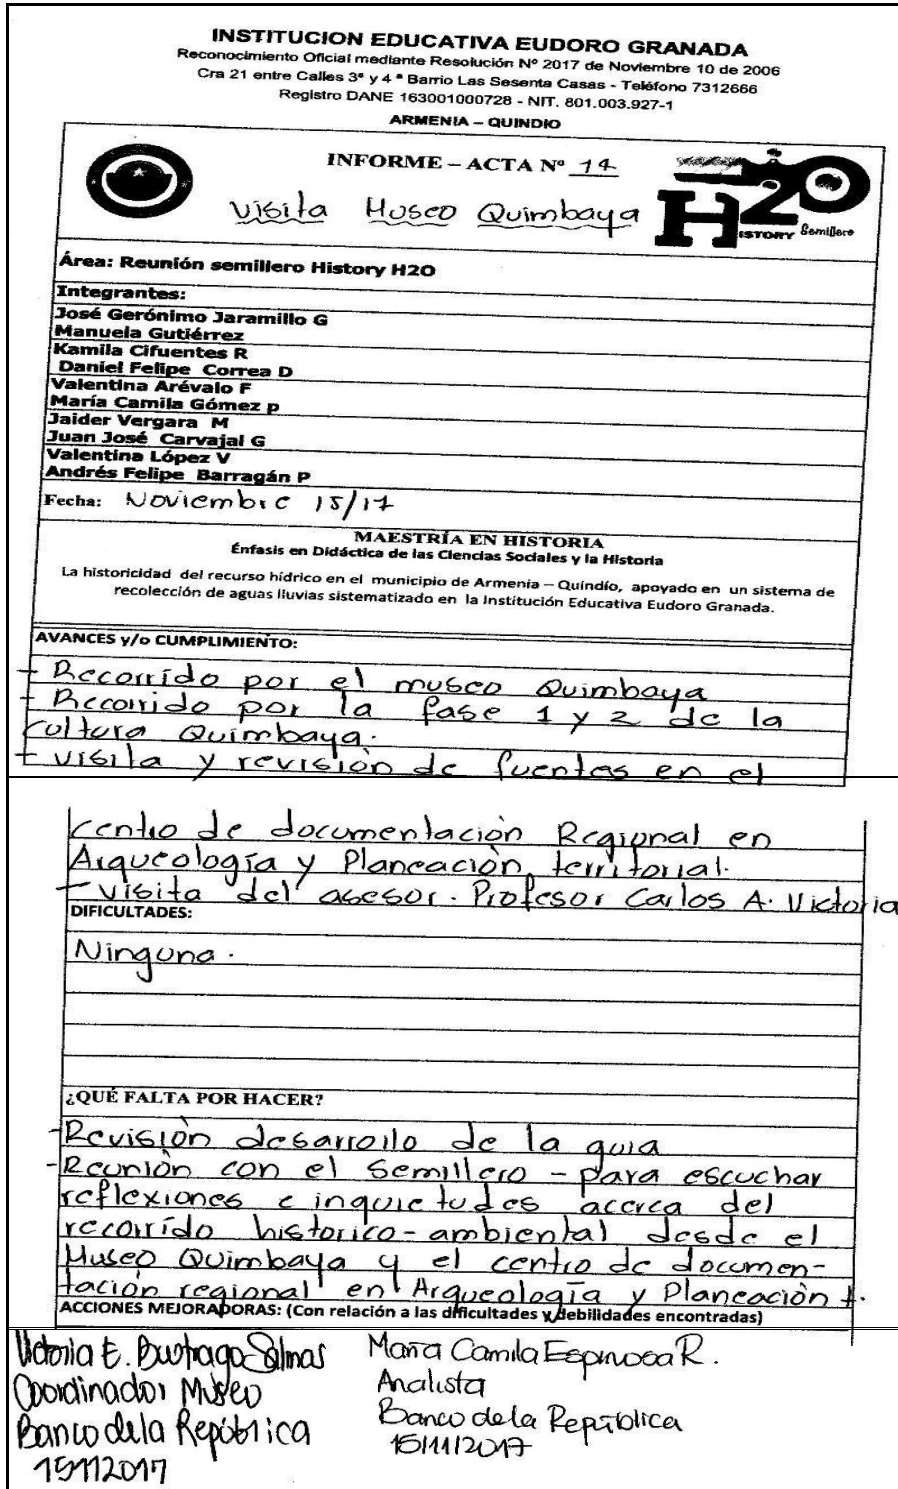 INSTITUCION EDUCATIVA EUDORO GRANADA
Reconocimiento Oficial mediante Resolución Nº 2017 de Noviembre 10 de 2006
Cra 21 entre Calles 3ª y 4 ª Barrio Las Sesenta Casas - Teléfono 7312666
Registro DANE 163001000728 - NIT. 801.003.927-1
ARMENIA – QUINDIO
INFORME – ACTA Nº 14
Visita Museo Quimbaya
H2O
ISTORY Semillero
Área: Reunión semillero History H2O
Integrantes:
José Gerónimo Jaramillo G
Manuela Gutiérrez
Kamila Cifuentes R
Daniel Felipe Correa D
Valentina Arévalo F
María Camila Gómez p
Jaider Vergara M
Juan José Carvajal G
Valentina López V
Andrés Felipe Barragán P
Fecha: Noviembre 15/17
MAESTRÍA EN HISTORIA
Énfasis en Didáctica de las Ciencias Sociales y la Historia
La historicidad del recurso hídrico en el municipio de Armenia – Quindío, apoyado en un sistema de
recolección de aguas lluvias sistematizado en la Institución Educativa Eudoro Granada.
AVANCES y/o CUMPLIMIENTO:
- Recorrido por el museo Quimbaya
- Recorrido por la fase 1 y 2 de la
cultura Quimbaya.
- visita y revisión de fuentes en el
centro de documentación Regional en
Arqueología y Planeación territorial.
- visita del asesor. Profesor Carlos A. Victoria
DIFICULTADES:
Ninguna.
¿QUÉ FALTA POR HACER?
- Revisión desarrollo de la guia
- Reunión con el semillero - para escuchar
reflexiones e inquietudes acerca del
recorrido historico - ambiental desde el
Museo Quimbaya y el centro de documen-
tación regional en Arqueología y Planeación t.
ACCIONES MEJORADORAS: (Con relación a las dificultades y debilidades encontradas)
Victoria E. Buitrago Salinas
Coordinador Museo
Banco de la República
15112017
María Camila Espinosa R.
Analista
Banco de la República
15/11/2017